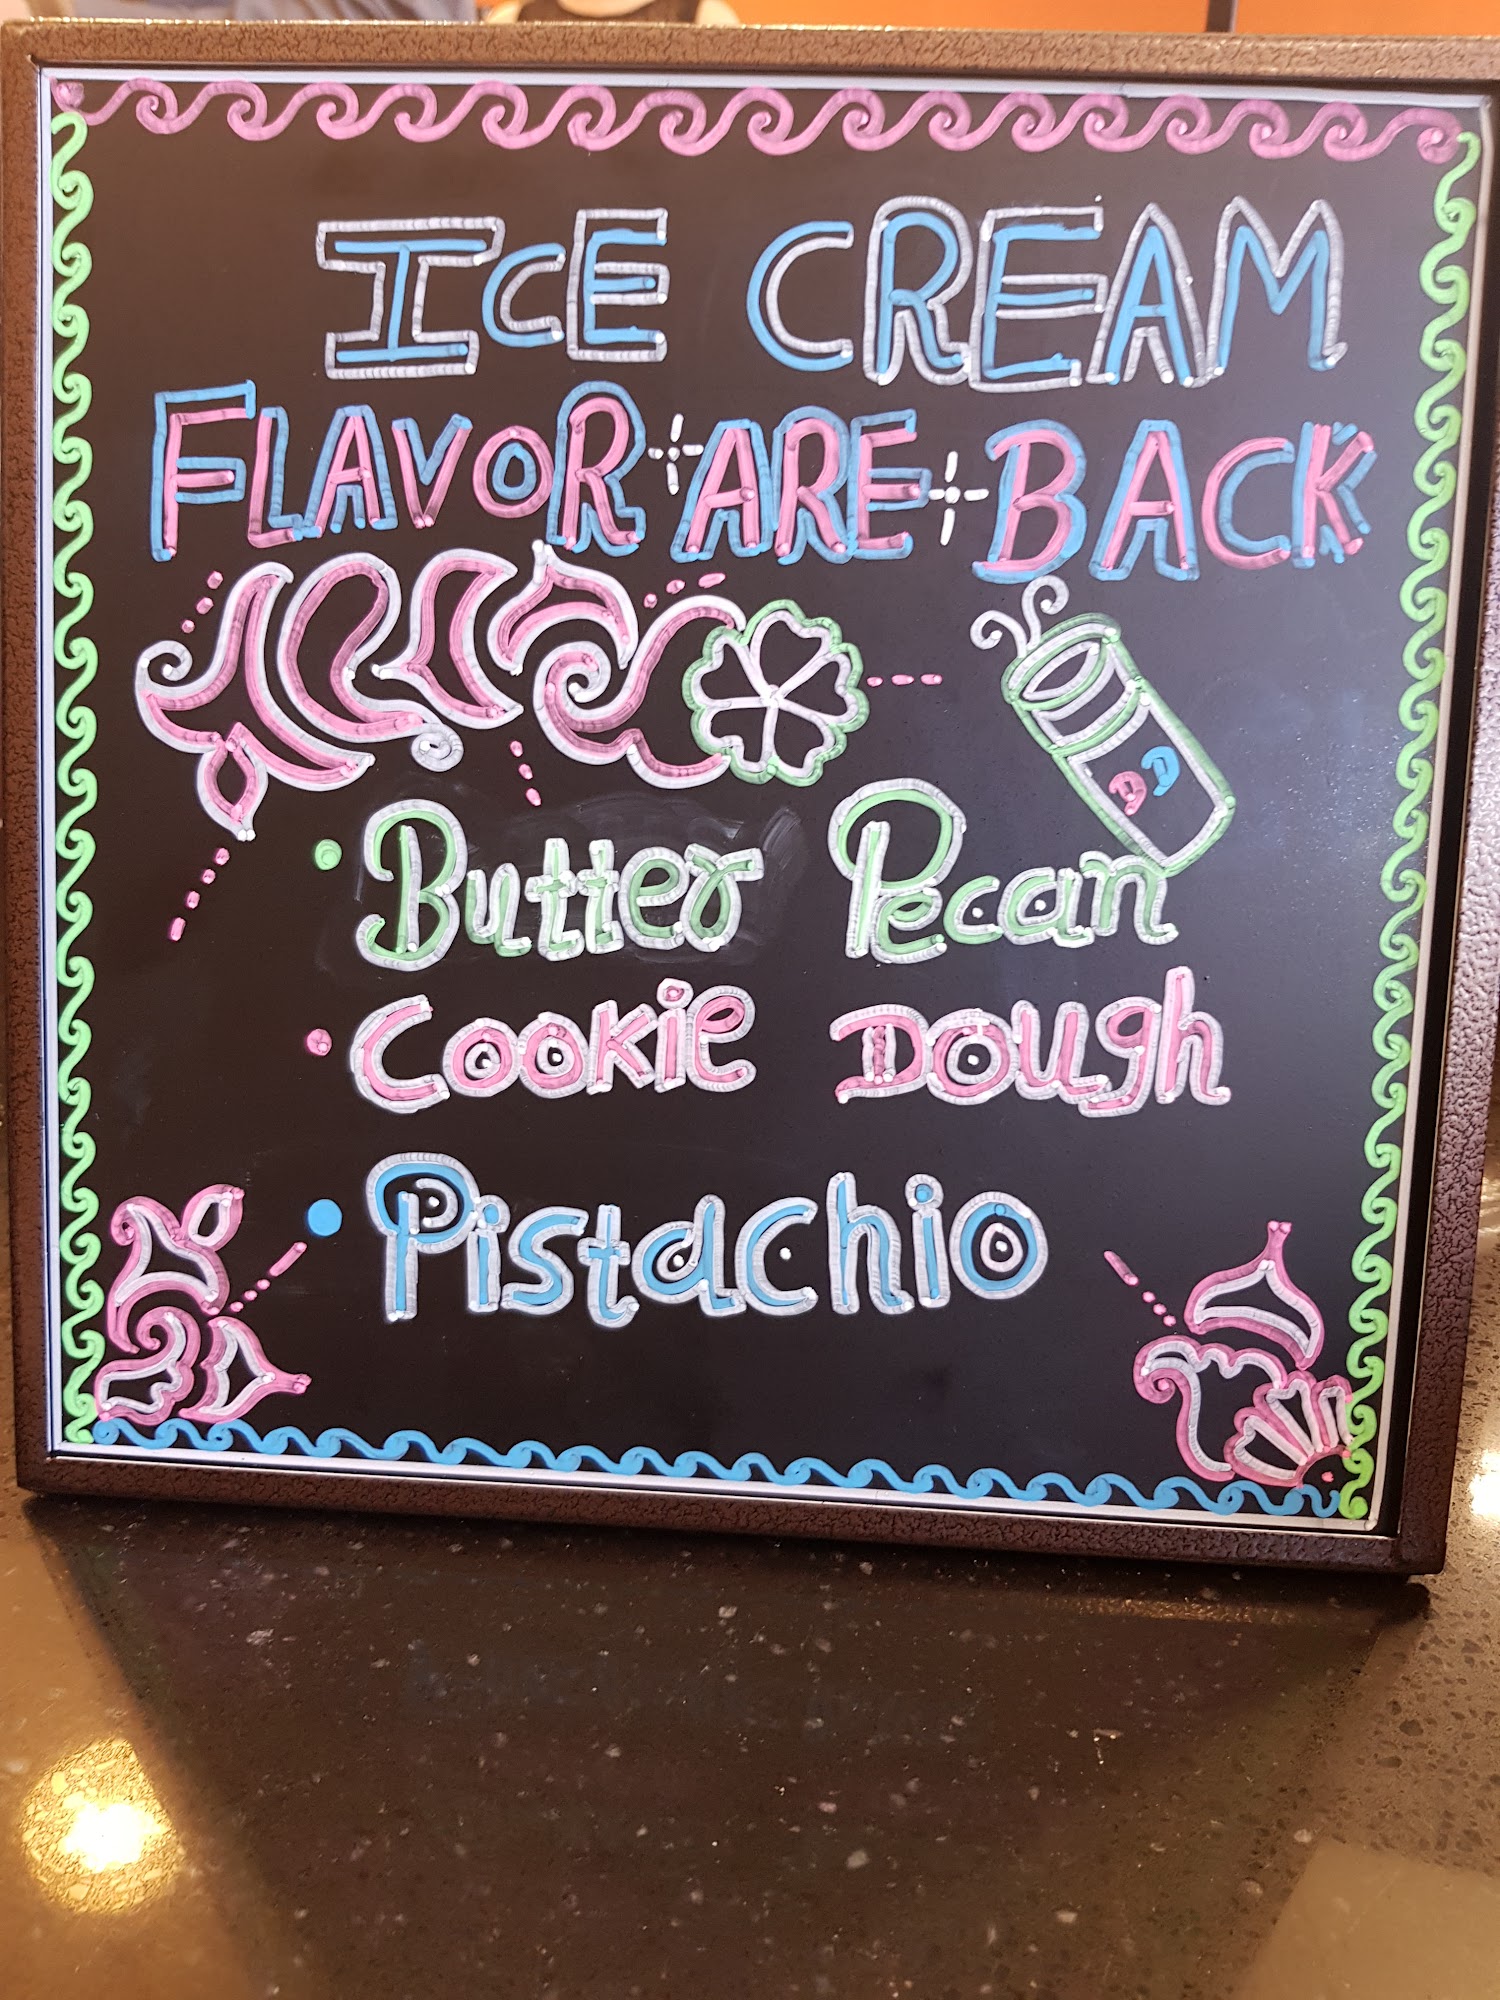 ICE CREAM
FLAVOR ARE BACK
DD
• Butter Pecan
• Cookie Dough
• Pistachio